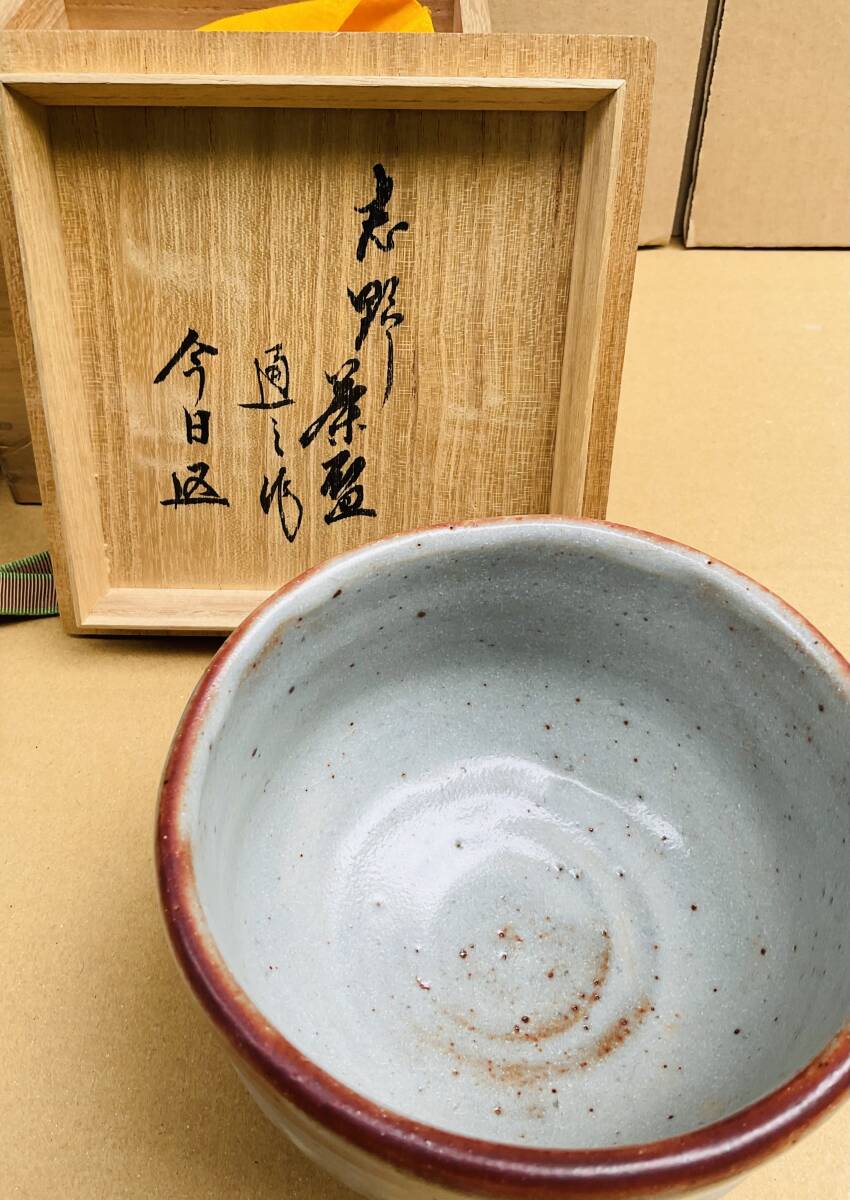 志野茶盌
通之作
今日